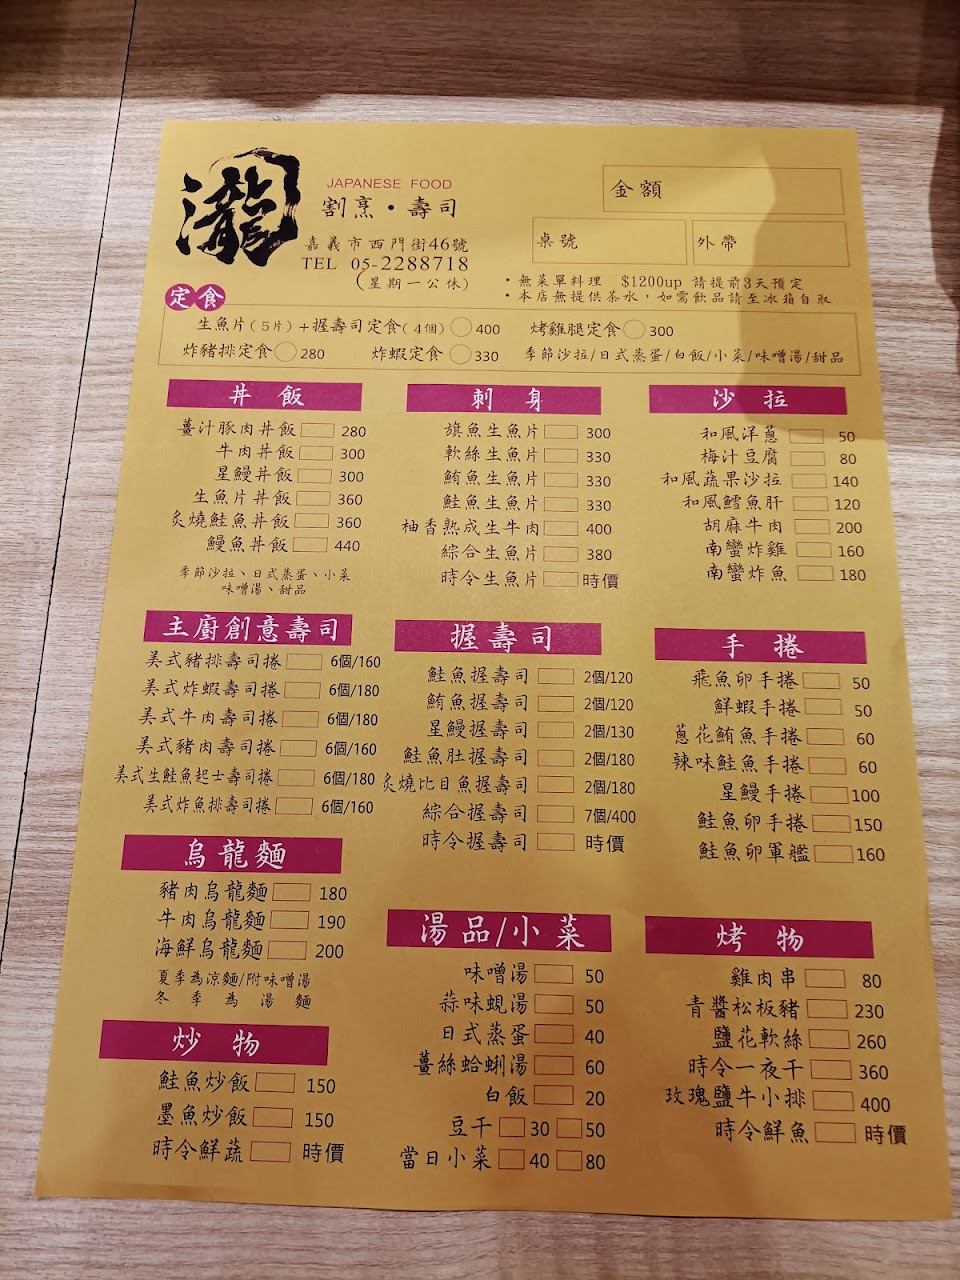 瀧
JAPANESE FOOD
割烹・壽司
嘉義市西門街46號
TEL 05-2288718
(星期一公休)
金額
桌號
外帶
・無菜單料理 $1200up 請提前3天預定
・本店無提供茶水，如需飲品請至冰箱自取
定食
生魚片(5片)+握壽司定食(4個) 400 烤雞腿定食 300
炸豬排定食 280 炸蝦定食 330 季節沙拉/日式蒸蛋/白飯/小菜/味噌湯/甜品
丼飯
薑汁豚肉丼飯 280
牛肉丼飯 300
星鰻丼飯 300
生魚片丼飯 360
炙燒鮭魚丼飯 360
鰻魚丼飯 440
季節沙拉、日式蒸蛋、小菜
味噌湯、甜品
刺身
旗魚生魚片 300
軟絲生魚片 330
鮪魚生魚片 330
鮭魚生魚片 330
柚香熟成生牛肉 400
綜合生魚片 380
時令生魚片 時價
沙拉
和風洋蔥 50
梅汁豆腐 80
和風蔬果沙拉 140
和風鱈魚肝 120
胡麻牛肉 200
南蠻炸雞 160
南蠻炸魚 180
主廚創意壽司
美式豬排壽司捲 6個/160
美式炸蝦壽司捲 6個/180
美式牛肉壽司捲 6個/180
美式豬肉壽司捲 6個/160
美式生鮭魚起士壽司捲 6個/180
美式炸魚排壽司捲 6個/160
握壽司
鮭魚握壽司 2個/120
鮪魚握壽司 2個/120
星鰻握壽司 2個/130
鮭魚肚握壽司 2個/180
炙燒比目魚握壽司 2個/180
綜合握壽司 7個/400
時令握壽司 時價
手捲
飛魚卵手捲 50
鮮蝦手捲 50
蔥花鮪魚手捲 60
辣味鮭魚手捲 60
星鰻手捲 100
鮭魚卵手捲 150
鮭魚卵軍艦 160
烏龍麵
豬肉烏龍麵 180
牛肉烏龍麵 190
海鮮烏龍麵 200
夏季為涼麵/附味噌湯
冬季為湯麵
炒物
鮭魚炒飯 150
墨魚炒飯 150
時令鮮蔬 時價
湯品/小菜
味噌湯 50
蒜味蜆湯 50
日式蒸蛋 40
薑絲蛤蜊湯 60
白飯 20
豆干 30 50
當日小菜 40 80
烤物
雞肉串 80
青醬松板豬 230
鹽花軟絲 260
時令一夜干 360
玫瑰鹽牛小排 400
時令鮮魚 時價